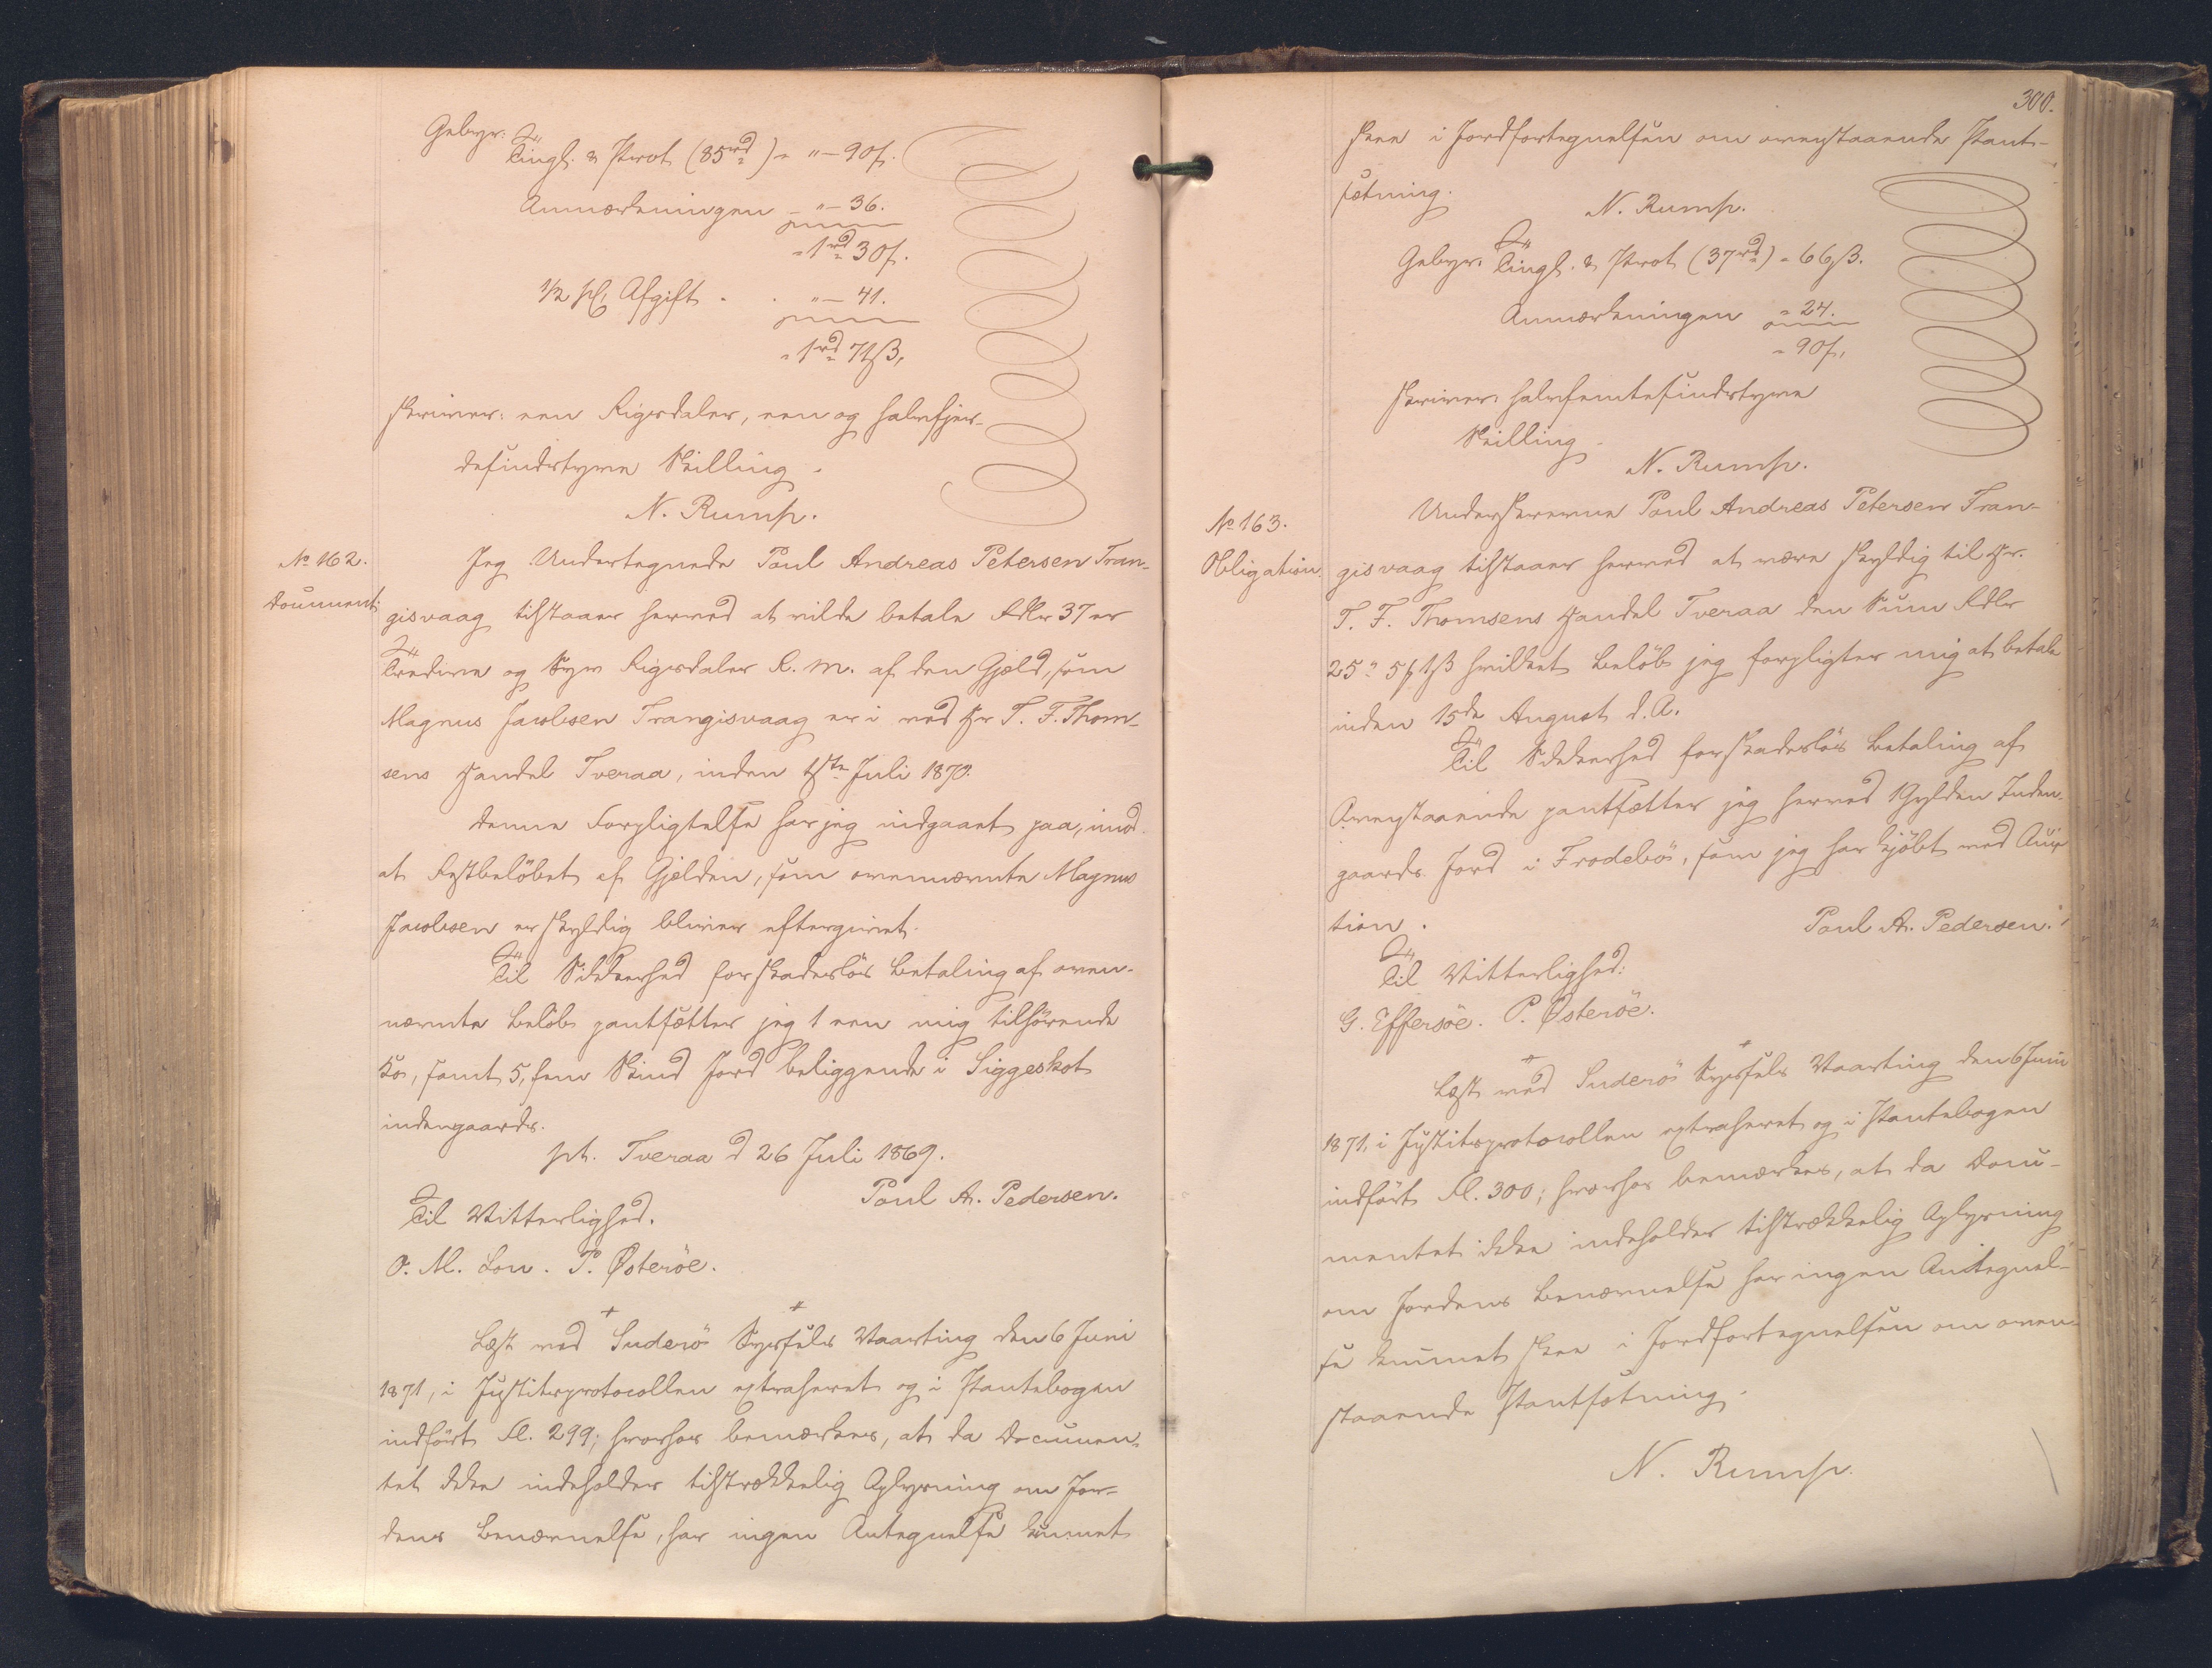 Gebyr:
Tingl. & Prot. (85rd) = " — 90ß.
Anmærkningen — " — 36.
= 1rd 30ß.
1/2 pCt Afgift . . " — 41.
= 1rd 71ß,
skriver: een Rigsdaler, een og halvfjer-
desindstyve Skilling.
N. Rump.
No 162.
Document
Jeg Undertegnede Poul Andreas Petersen Tran-
gisvaag tilstaaer herved at vilde betale Rdlr 37 er
Tredive og Syv Rigsdaler R. M. af den Gjæld, som
Magnus Jacobsen Trangisvaag er i ved Hr T. F. Thom-
sens Handel Tveraa, inden 1ste Juli 1870.
Denne Forpligtelse har jeg indgaaet paa, imod
at Restbeløbet af Gjælden, som ovennævnte Magnus
Jacobsen er skyldig bliver eftergivet.
Til Sikkerhed for skadesløs Betaling af oven-
nævnte Beløb pantsætter jeg 1 een mig tilhørende
Ko, samt 5, fem Skind Jord beliggende i Siggeskot
indengaards.
pt. Tveraa d 26 Juli 1869.
Poul A. Pedersen.
Til Vitterlighed.
O. M. Lou. P. Østeröe.
Læst ved Suderö Syssels Vaarting den 6 Juni
1871, i Justitsprotocollen extraheret og i Pantebogen
indført Fl. 299; hvorhos bemærkes, at da Documen-
tet ikke indeholder tilstrækkelig Oplysning om Jor-
dens Benævnelse, har ingen Antegnelse kunnet
300.
skee i Jordfortegnelsen om ovenstaaende Pant-
sætning.
N. Rump.
Gebyr: Tingl. & Prot (37rd) = 66ß.
Anmærkningen = 24.
= 90ß,
skriver halvfemtesindstyve
Skilling.
N. Rump.
No 163.
Obligation.
Underskrevne Poul Andreas Petersen Tran-
gisvaag tilstaaer herved at være skyldig til Hr.
T. F. Thomsens Handel Tveraa den Sum Rdlr
25 " 5 ₰ 1ß hvilket Beløb jeg forpligter mig at betale
inden 15de August d. A.
Til Sikkerhed for skadesløs Betaling af
Ovenstaaende pantsætter jeg herved 1 Gylden Inden-
gaards Jord i Frodebö, som jeg har kjøbt ved Auc-
tion.
Poul A. Pedersen."
Til Vitterlighed:
G. Effersöe. P. Østeröe.
Læst ved Suderö Syssels Vaarting den 6 Juni
1871, i Justitsprotocollen extraheret og i Pantebogen
indført Fl. 300; hvorhos bemærkes, at da Docu-
mentet ikke indeholder tilstrækkelig Oplysning
om Jordens Benævnelse har ingen Antegnel-
se kunnet skee i Jordfortegnelsen om oven-
staaende Pantsætning.
N. Rump.